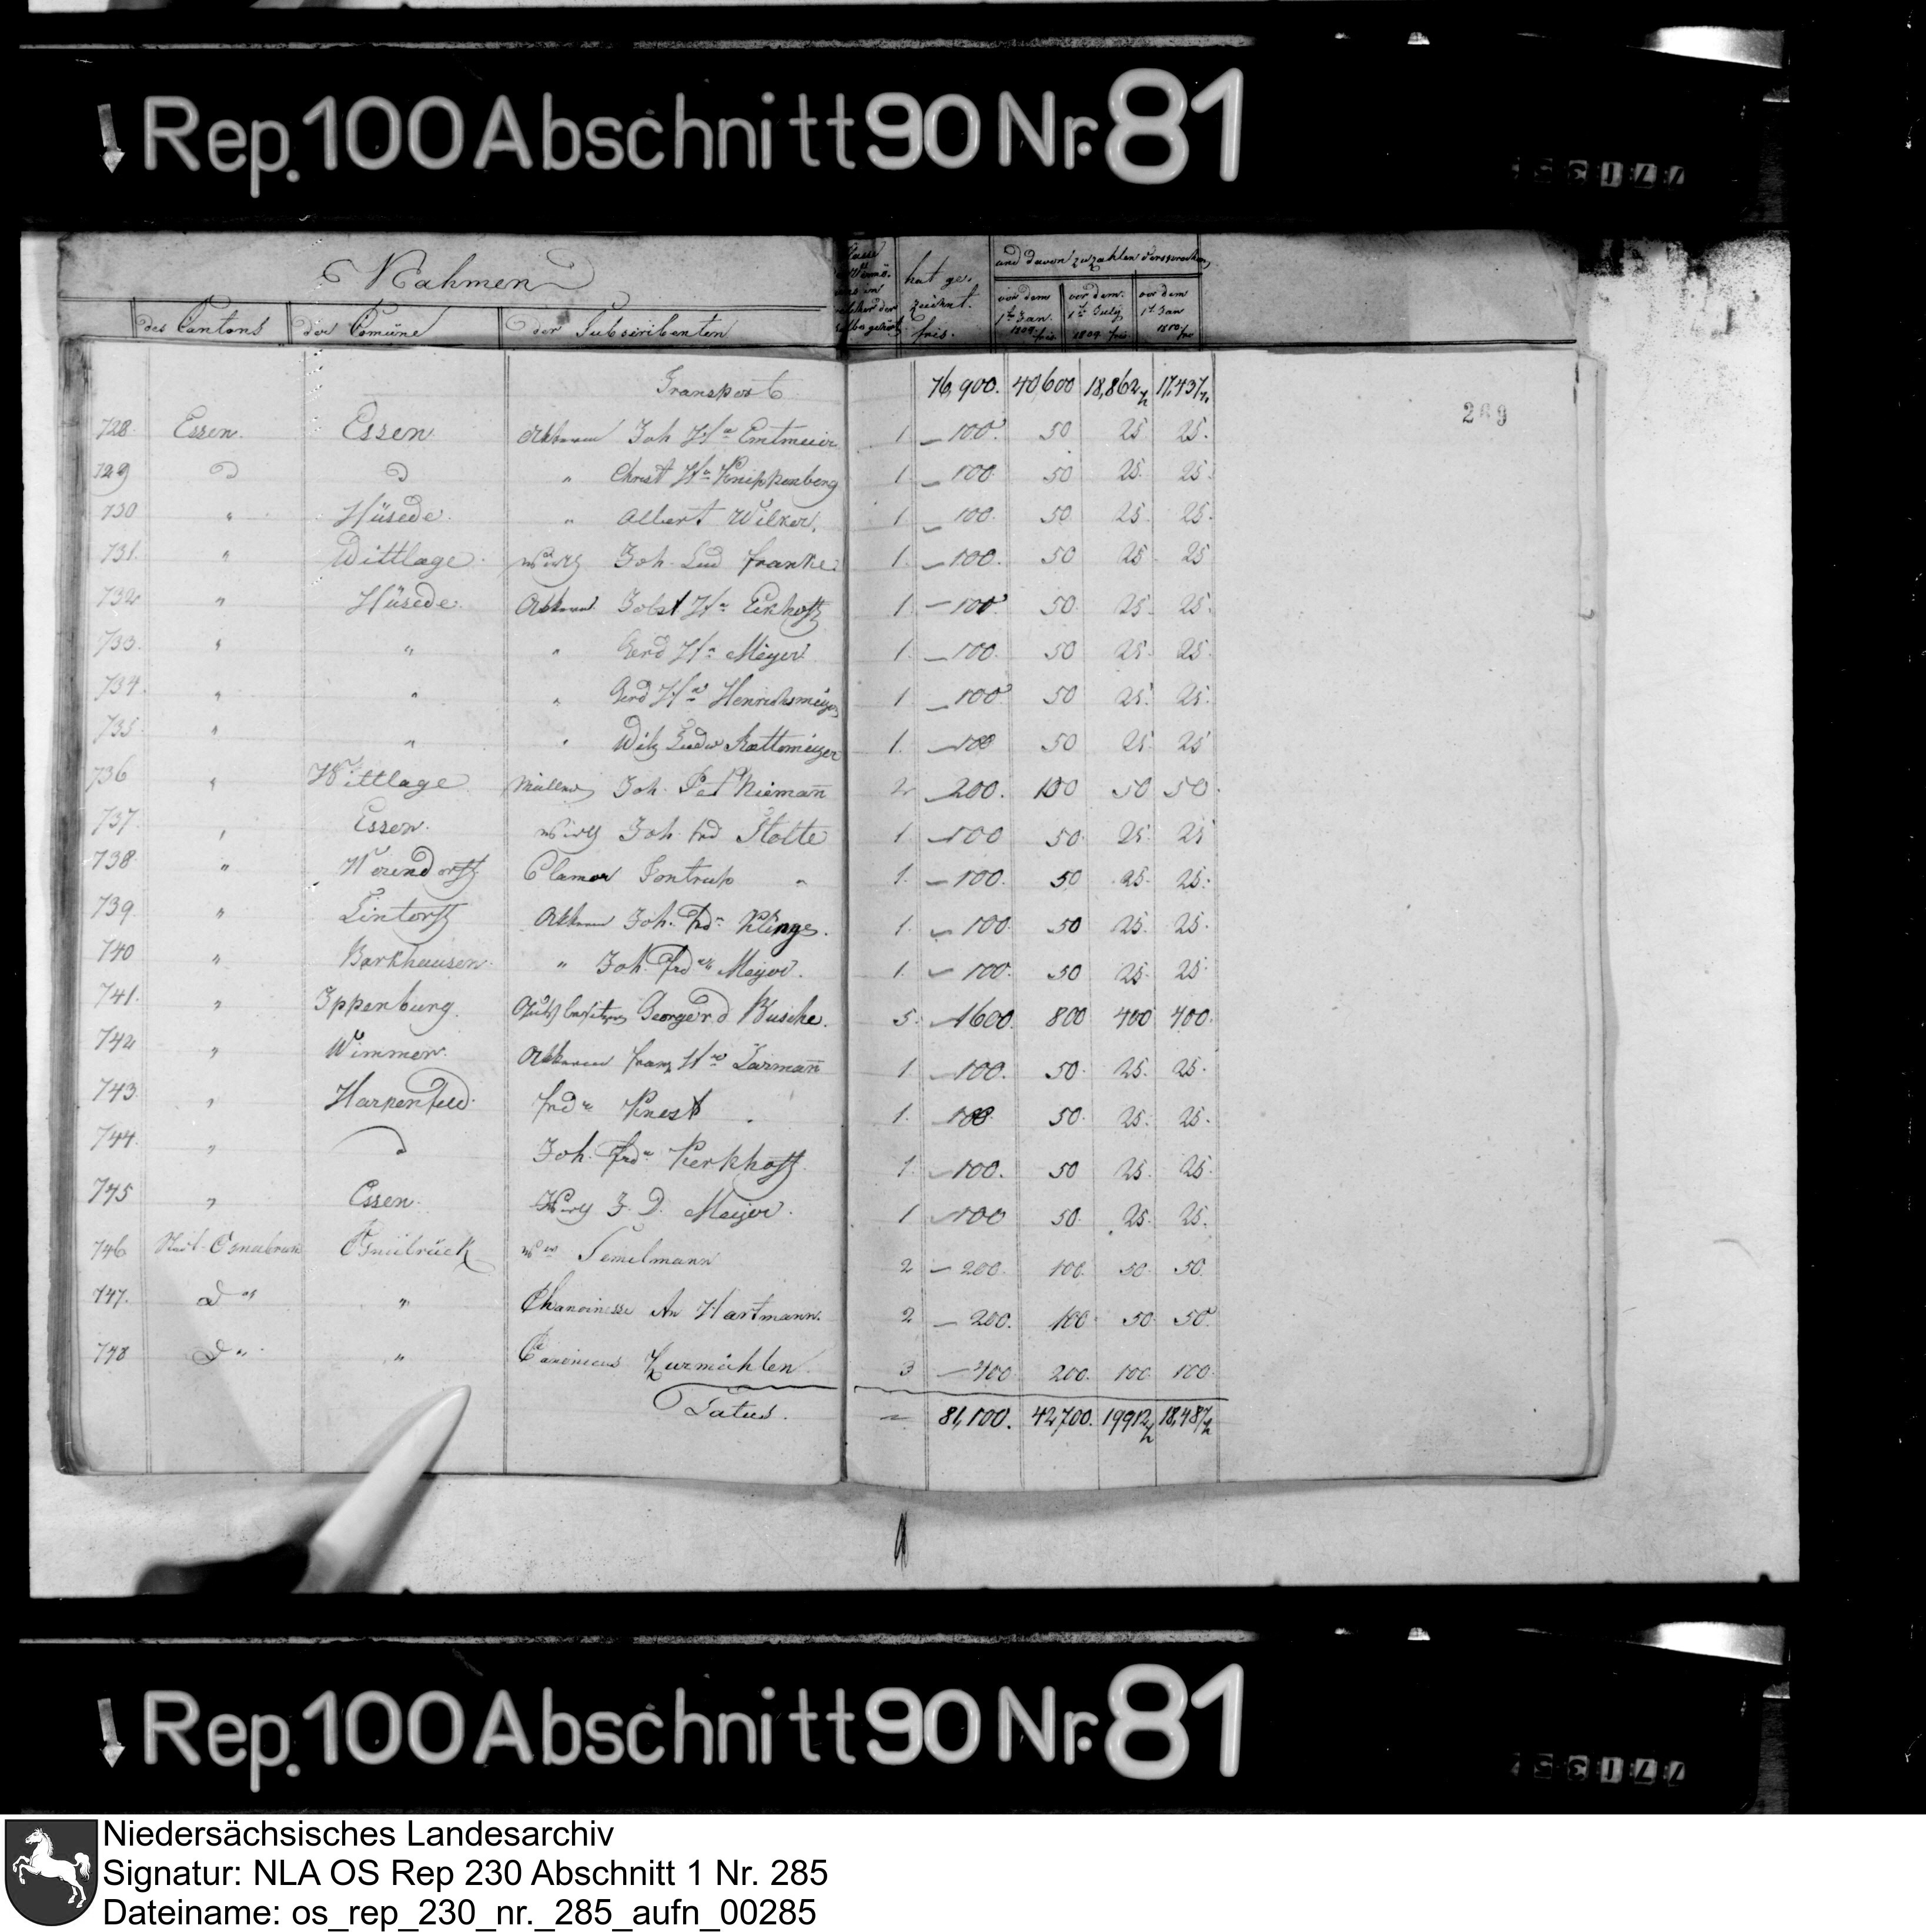 Rep. 100 Abschnitt 90 Nr. 81
Nahmen
des Cantons der Comüne der Subscribenten hat gezeichnet. frcs. und davon zu zahlen versprochen
vor dem 1t Jan. 1809. frcs. vor dem 1t July 1809 frcs vor dem 1t Jan 1810 frc
Transport 76,900. 40,600 18,862½ 17,437½
269
728. Essen. Essen Joh Hr 1 100 50 25 25.
729 D D " Christ Hr Knippenberg 1 100 50 25. 25.
730 " Hüsede. " Albert Wilker. 1 100. 50 25. 25.
731. " Wittlage. Wirth Joh. Lud franke 1. 100. 50 25. 25
732 " Hüsede. Jobst Hr Eickhoff 1. 100 50. 25. 25.
733. " " " Gerd Hr Meyer. 1. 100. 50 25. 25.
734. " " " Gerd Hr Henrichsmeyer 1 100 50 25. 25.
735. " " " 1. 100 50 25. 25
736 " Wittlage Müller Joh. Pet Niemañ 2 200. 100 50 50.
737 " Essen. Wirth Joh. frd Stolte 1. 100 50. 25. 25
738. " Clamor Sontrup " 1. 100. 50 25. 25.
739. " Lintorff Joh. frdr Klinge. 1. 100. 50 25. 25.
740 " Barkhausen. " Joh. frdr Meyer. 1. 100. 50 25. 25.
741. " Ippenburg. Gutsbesitzer George v. d Busche. 5. 1600. 800 400 400.
742 " Wimmer. franz Hr 1 100. 50. 25. 25.
743. " Harpenfeld. frdr Knest. 1. 100 50. 25. 25.
744. " D Joh. frdr Kerkhoff. 1. 100. 50 25. 25.
745 " Essen. Wirth J. D. Meyer. 1 100 50. 25. 25.
746 Stadt-Osnabruck Osnabrück Wwe Temelmann 2 200. 100. 50. 50.
747. Do " Chanoinesse An Hartmann. 2 200. 100. 50 50.
748 Do " Canonicus Zurmühlen. 3 400 200. 100. 100.
Latus. 81,100. 42,700. 19912½ 18,487½
Rep. 100 Abschnitt 90 Nr. 81
Niedersächsisches Landesarchiv
Signatur: NLA OS Rep 230 Abschnitt 1 Nr. 285
Dateiname: os_rep_230_nr._285_aufn_00285